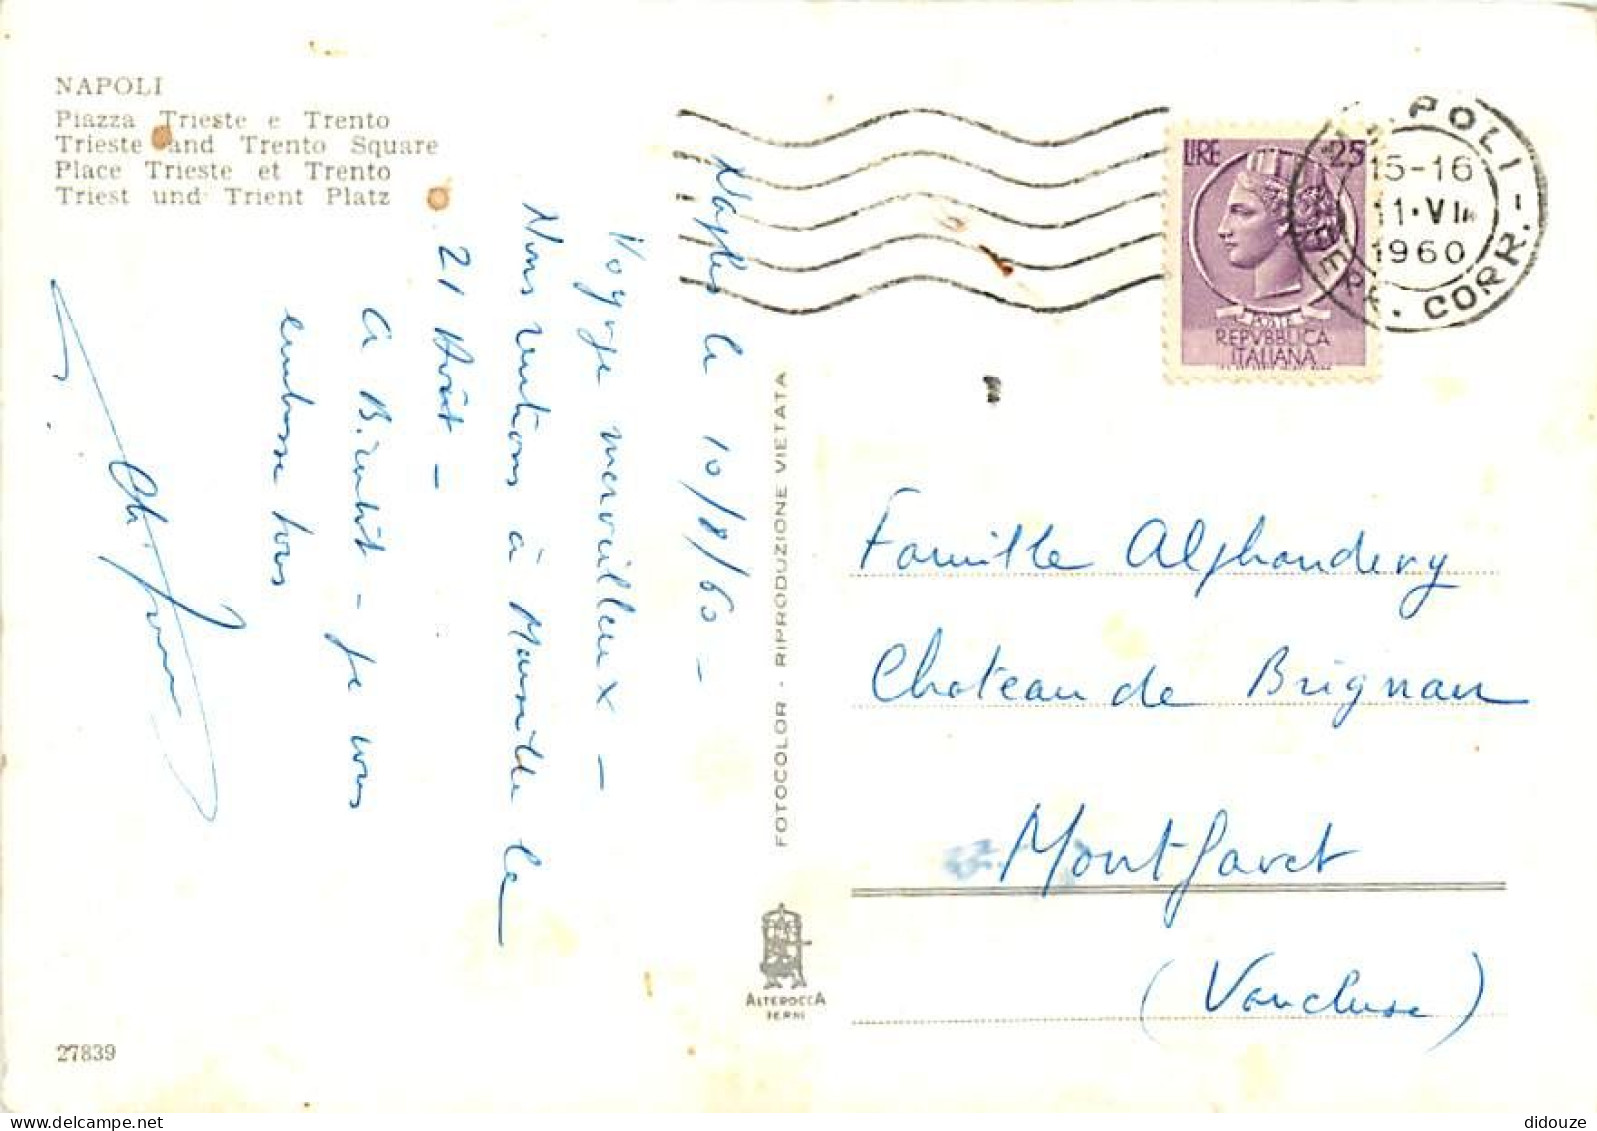 NAPOLI
Piazza Trieste e Trento
Trieste and Trento Square
Place Trieste et Trento
Triest und Trient Platz
Naples le 10/8/60 -
Voyage merveilleux -
Nous rentrons à Marseille le
21 Août -
A Bientôt - je vous
embrasse tous
FOTOCOLOR - RIPRODUZIONE VIETATA
ALTEROCCA
TERNI
27839
LIRE 25
POSTE
REPVBBLICA
ITALIANA
NAPOLI
15-16
1960
FERR. CORR.
Famille Alphandery
Chateau de Brignan
Montfavet
(Vaucluse)
didouze